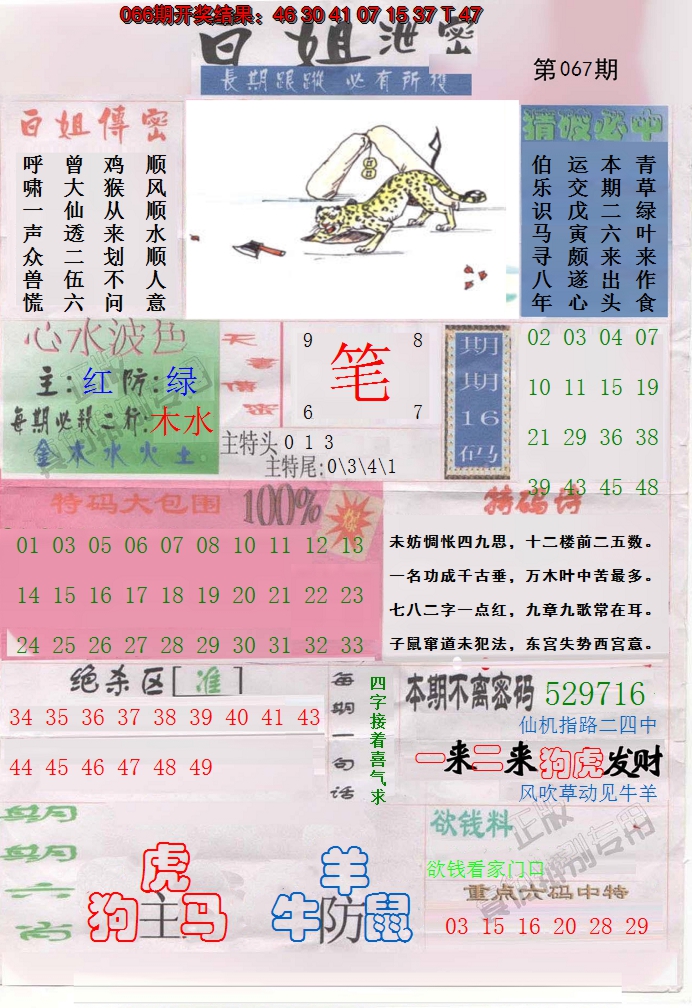 066期开奖结果：46 30 41 07 15 37 T 47
白姐泄密
第067期
長期跟蹤 必有所獲
白姐傳密
顺风顺水顺人意
鸡猴从来划不问
曾大仙透二伍六
呼啸一声众兽慌
猜波必中
青草绿叶来作食
本期二六来出头
运交戊寅颇遂心
伯乐识马寻八年
心水波色
主:红防:绿
每期必殺二行:木水
金木水火土
天書信密
9 8
笔
6 7
主特头013
主特尾:0\3\4\1
期期16码
02 03 04 07
10 11 15 19
21 29 36 38
39 43 45 48
特码大包围 100%
01 03 05 06 07 08 10 11 12 13
14 15 16 17 18 19 20 21 22 23
24 25 26 27 28 29 30 31 32 33
特码诗
未妨惆怅四九思，十二楼前二五数。
一名功成千古垂，万木叶中苦最多。
七八二字一点红，九章九歌常在耳。
子鼠窜道未犯法，东宫失势西宫意。
绝杀区[准]
34 35 36 37 38 39 40 41 43
44 45 46 47 48 49
每期一句话
四字接着喜气求
本期不离密码 529716
仙机指路二四中
一来二来狗虎发财
风吹草动见牛羊
每期六肖
虎
狗主马
羊
牛防鼠
欲钱料
欲钱看家门口
重点六码中特
03 15 16 20 28 29